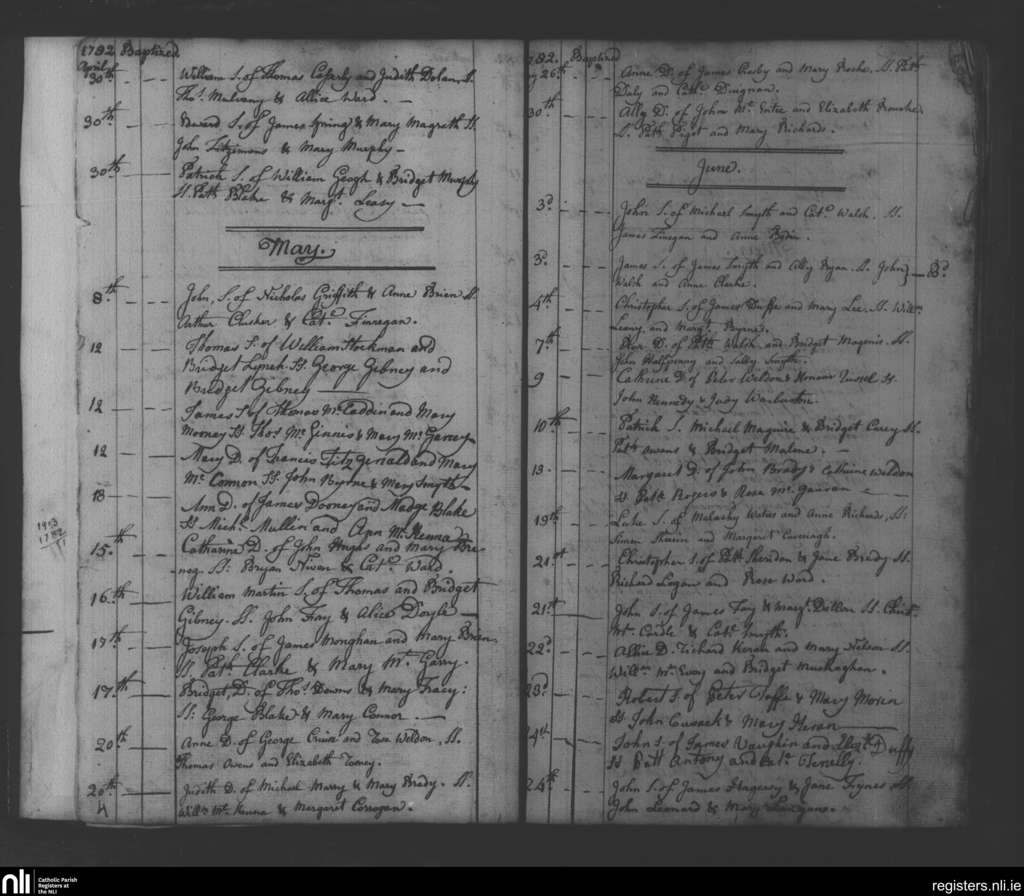 1782 Baptized
April
30th William S. of Thomas Caferly and Judith Dolan. Ss.
Thos. Mulvany & Alice Ward.
30th Edward S. of James Spring & Mary Magrath Ss.
John Fitzimons & Mary Murphy
30th Patrick S. of William Geogh & Bridget Murphy
Ss. Patt. Blake & Margt. Leasy
May.
8th John, S. of Nicholas Griffith & Anne Brien Ss.
Arthur Clusker & Cat. Finnegan.
12 Thomas S. of William Stockman and
Bridget Lynch Ss. George Gibney and
Bridget Gibney
12 James S. of Thomas McCaddin and Mary
Mooney Ss. Thos. McGinnis & Mary McGarrey
12 Mary D. of Francis Fitzgerrald and Mary
McConnon Ss. John Byrne & Mary Smyth
13 Ann D. of James Dooney and Madge Blake
Ss. Michl. Mullin and Ann McKenna
1913
1782
15th Catharine D. of John Hughs and Mary
Ss: Bryan & Cat. Ward.
16th William Martin S. of Thomas and Bridget
Gibney. Ss. John Foy & Alice Doyle
17th Joseph S. of James Monghan and Mary Brien
Ss. Patk. Clarke & Mary McGarry.
17th Bridget, D. of Thos. Downs & Mary Tracy:
Ss: George Blake & Mary Connor
20th Anne D. of George Cruise and Rose Weldon. Ss.
Thomas Owens and Elizabeth Toney.
20th Judith D. of Michael Marry & Mary Brady. Ss.
Willm. McKenna & Margaret Corrogan.
1782. Baptized
26th Anne D. of James Crosby and Mary Roche. Ss. Patt
Daly and Cath. Duignan.
30th Ally D. of John McEntee and Elizabeth
S. Patt. Pigot and Mary Richards.
June.
3d. John S. of Michael Smyth and Cat. Walsh. Ss.
James Finegan and Anne
3d. James S. of James Smyth and Ally Ryan. Ss. John } 3d.
Walsh and Anne Clarke.
4th Christopher S. of James Duffe and Mary Lee. Ss. Willm.
Leavy and Margt. Byrne.
7th D. of Patt. Walsh and Bridget Magenis. Ss.
John Halfpenny and Sally Smyth.
9 Cathrine D. of Peter Weldon & Honour Tussel Ss.
John Kennedy & Judy Warburton.
10th Patrick S. Michael Maguire & Bridget Carey Ss.
Patt. Owens & Bridget Malone.
13. Margaret D. of John Brady & Cathrine Weldon
Ss. Patt. Rogers & Rose McGauran
19th Luke S. of Malachy Waties and Anne Richards, Ss:
Simon and Margaret Cavenagh.
21st Christopher S. of Patt. Sheridon & Jane Brady Ss.
Richard Logan and Rose Ward.
21st John S. of James Foy & Margt. Dollan Ss. Christ
McCardle & Cat. Smyth.
22d. Allice D. Richard Keran and Mary Nelson Ss.
Willm. McEvoy and Bridget
23d. Robert S. of Peter Taffe & Mary Morin
Ss. John Cusack & Mary Keran
24t. John S. of James Vaughin and Elizth. Duffy
Ss. Patt Antony and Cat.
24th. John S. of James Hagerty & Jane Tynes Ss.
John Leonard & Mary
nli
Catholic Parish
Registers at
the NLI
registers.nli.ie